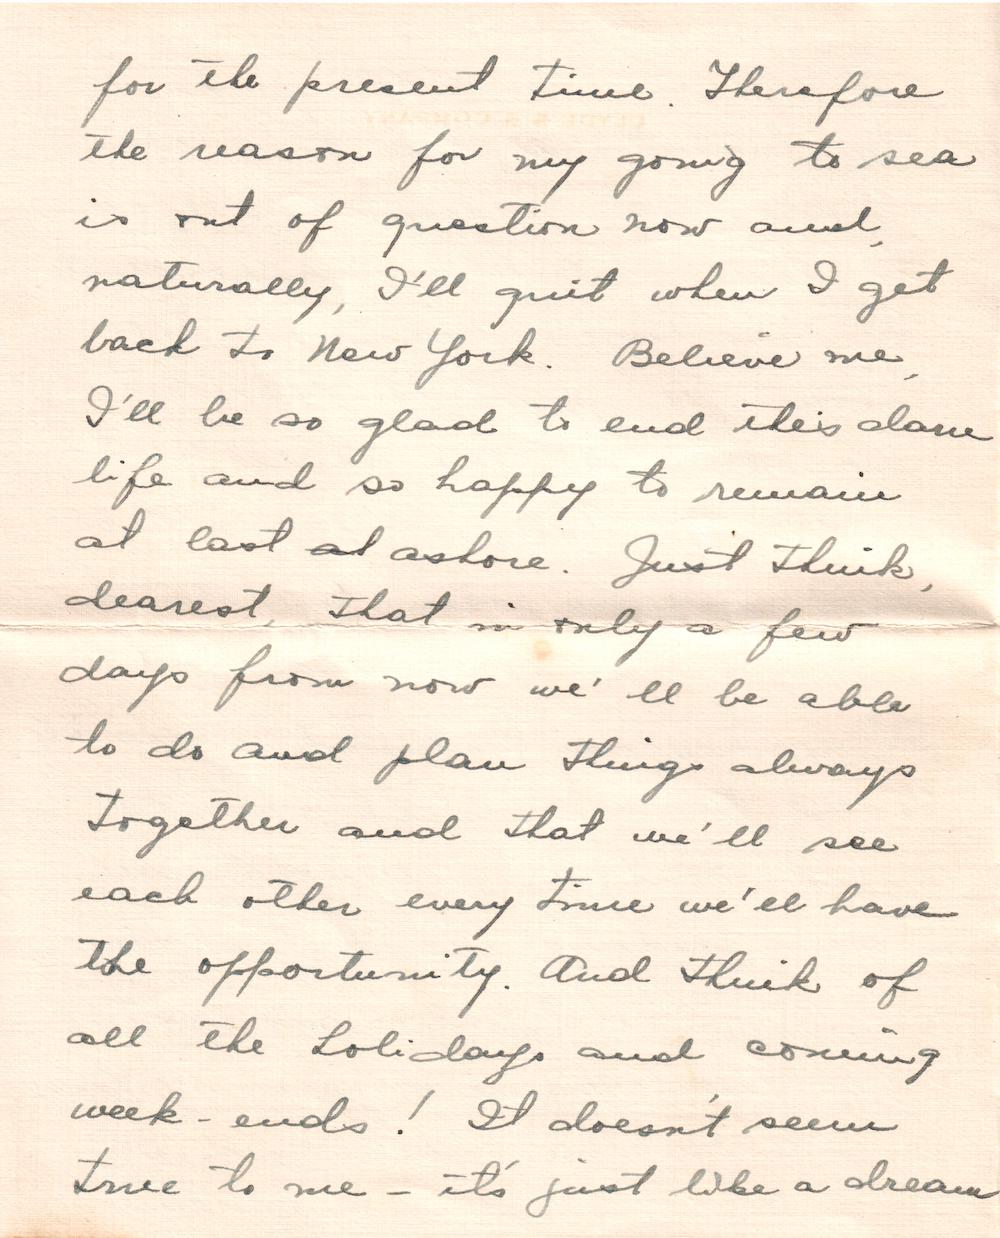 for the present time. Therefore
the reason for my going to sea
is out of question now and,
naturally, I'll quit when I get
back to New York. Believe me,
I'll be so glad to end this darn
life and so happy to remain
at last at ashore. Just think,
dearest, that in only a few
days from now we'll be able
to do and plan things always
together and that we'll see
each other every time we'll have
the opportunity. And think of
all the holidays and coming
week-ends! It doesn't seem
true to me - it's just like a dream